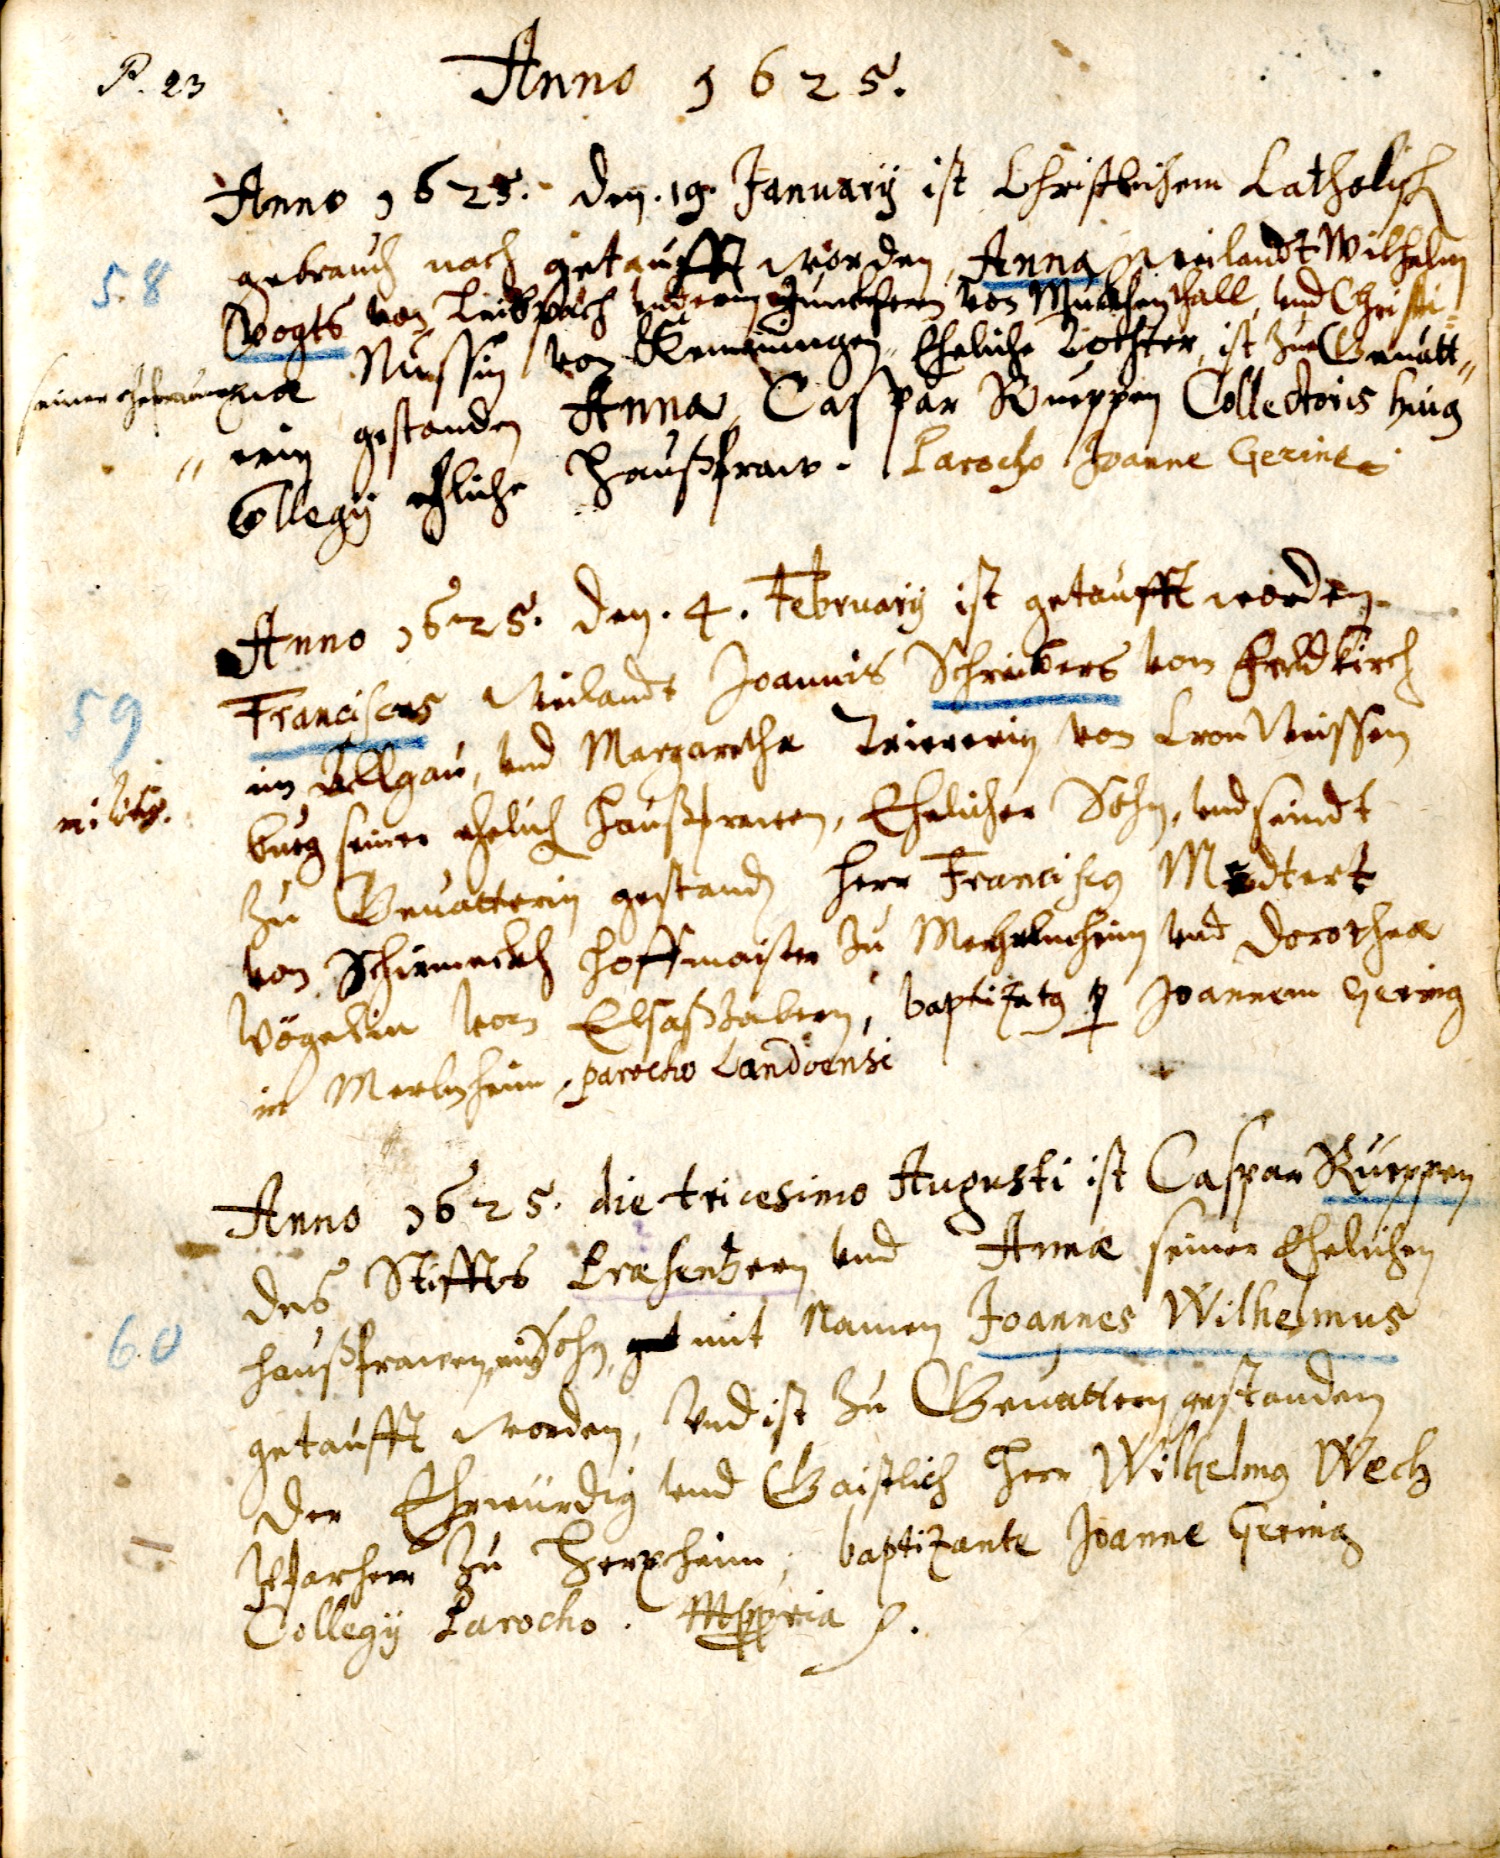 P. 23
Anno 1625.
Anno 1625. den. 19. Januarij ist Christlichem Catholisch
58
gebrauch nach getaufft worden, Anna, weilandt Wilhelm
Vogts von Leibpach von und Christi-
seiner ehefrauen
na Nussin von Ehelicher Tochter, ist zur Gevatt-
erin gestanden Anna, Caspar Rueppen Collectoris huius
Collegij ehliche Haußfraw. Parocho Joanne Gering.
Anno 1625. den. 4. February ist getaufft worden
59
Franciscus weilandt Joannis Schreibers von Feldkirch
im und Margaretha von Cron Weissen
milit.
burg seiner ehelich haußfrawen, Ehelicher Sohn, und seindt
zu Gevatterin gestanden herr Franciscus
von Schirmeckh hoffmaister zu und Dorothea
Vögelin von Elsaßzabern, baptizatus p Joannem Gering
in parocho Landoensi
Anno 1625. die tricesimo Augusti ist Caspar Rueppen
des Stiffts und Annæ seiner Ehelichen
60
haußfrawen, ein Sohn, mit Namen Joannes Wilhelmus
getaufft worden, Und ist zu Gevattern gestanden
der Ehrwürdig und Gaistlich Herr Wilhelmus Wech
Pfarherr zu Herxheim, baptizante Joanne Gering
Collegij Parocho. Mppria